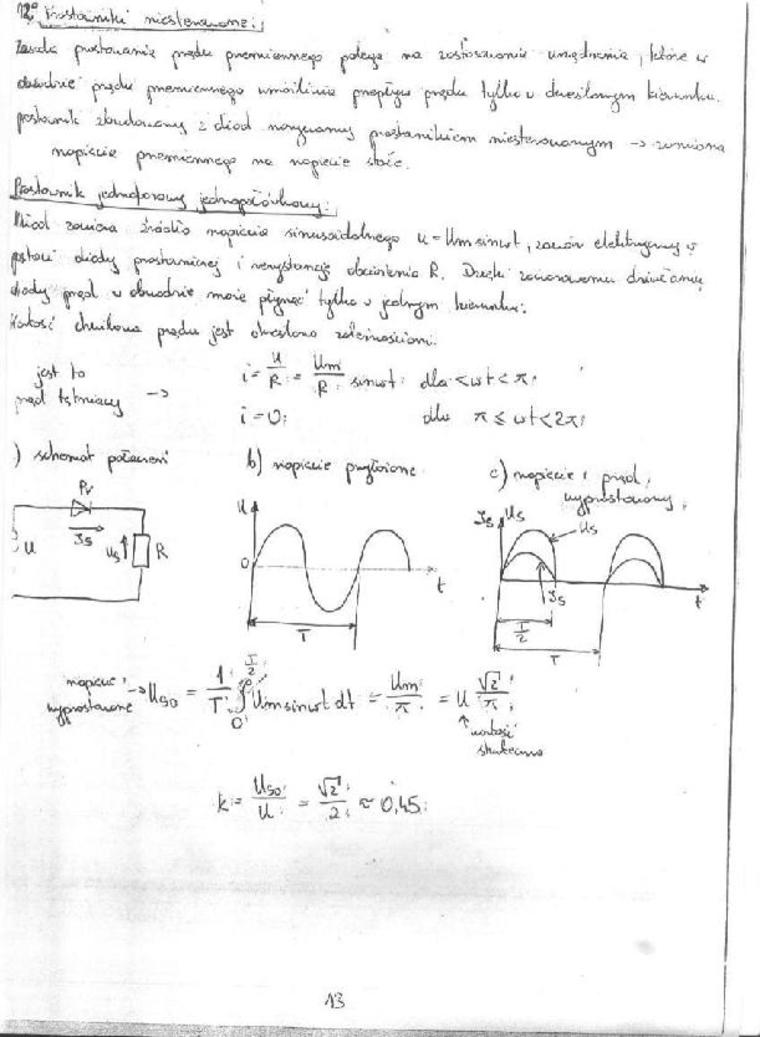 12° Prostowniki niesterowane:
Zasada prostowania prądu przemiennego polega na zastosowaniu urządzenia, które w
obwodzie prądu przemiennego umożliwia przepływ prądu tylko w określonym kierunku.
prostownik zbudowany z diod nazywamy prostownikiem niesterowanym -> zamiana
napięcia przemiennego na napięcie stałe.
Prostownik jednofazowy jednopołówkowy:
zawiera źródło napięcia sinusoidalnego u = Um sinωt, zawór elektryczny w
postaci diody prostowniczej i rezystancję obciążenia R. Dzięki zaworowemu działaniu
diody prąd w obwodzie może płynąć tylko w jednym kierunku.
Wartość chwilowa prądu jest określona zależnościami.
jest to
prąd tętniący ->
i = u/R = Um/R sinωt dla < ωt < π
i = 0 dla π ≤ ωt < 2π
) schemat połączeń
b) napięcie przyłożone
c) napięcie i prąd
wyprostowany
Pr
Is
U
Us
R
u
0
t
T
Is Us
Us
Is
t
T/2
T
napięcie
wyprostowane -> Us0 = 1/T ∫0 T/2 Um sinωt dt = Um/π = U √2/π
↑ wartość
skuteczna
k = Us0/U = √2/2 ≈ 0,45
13